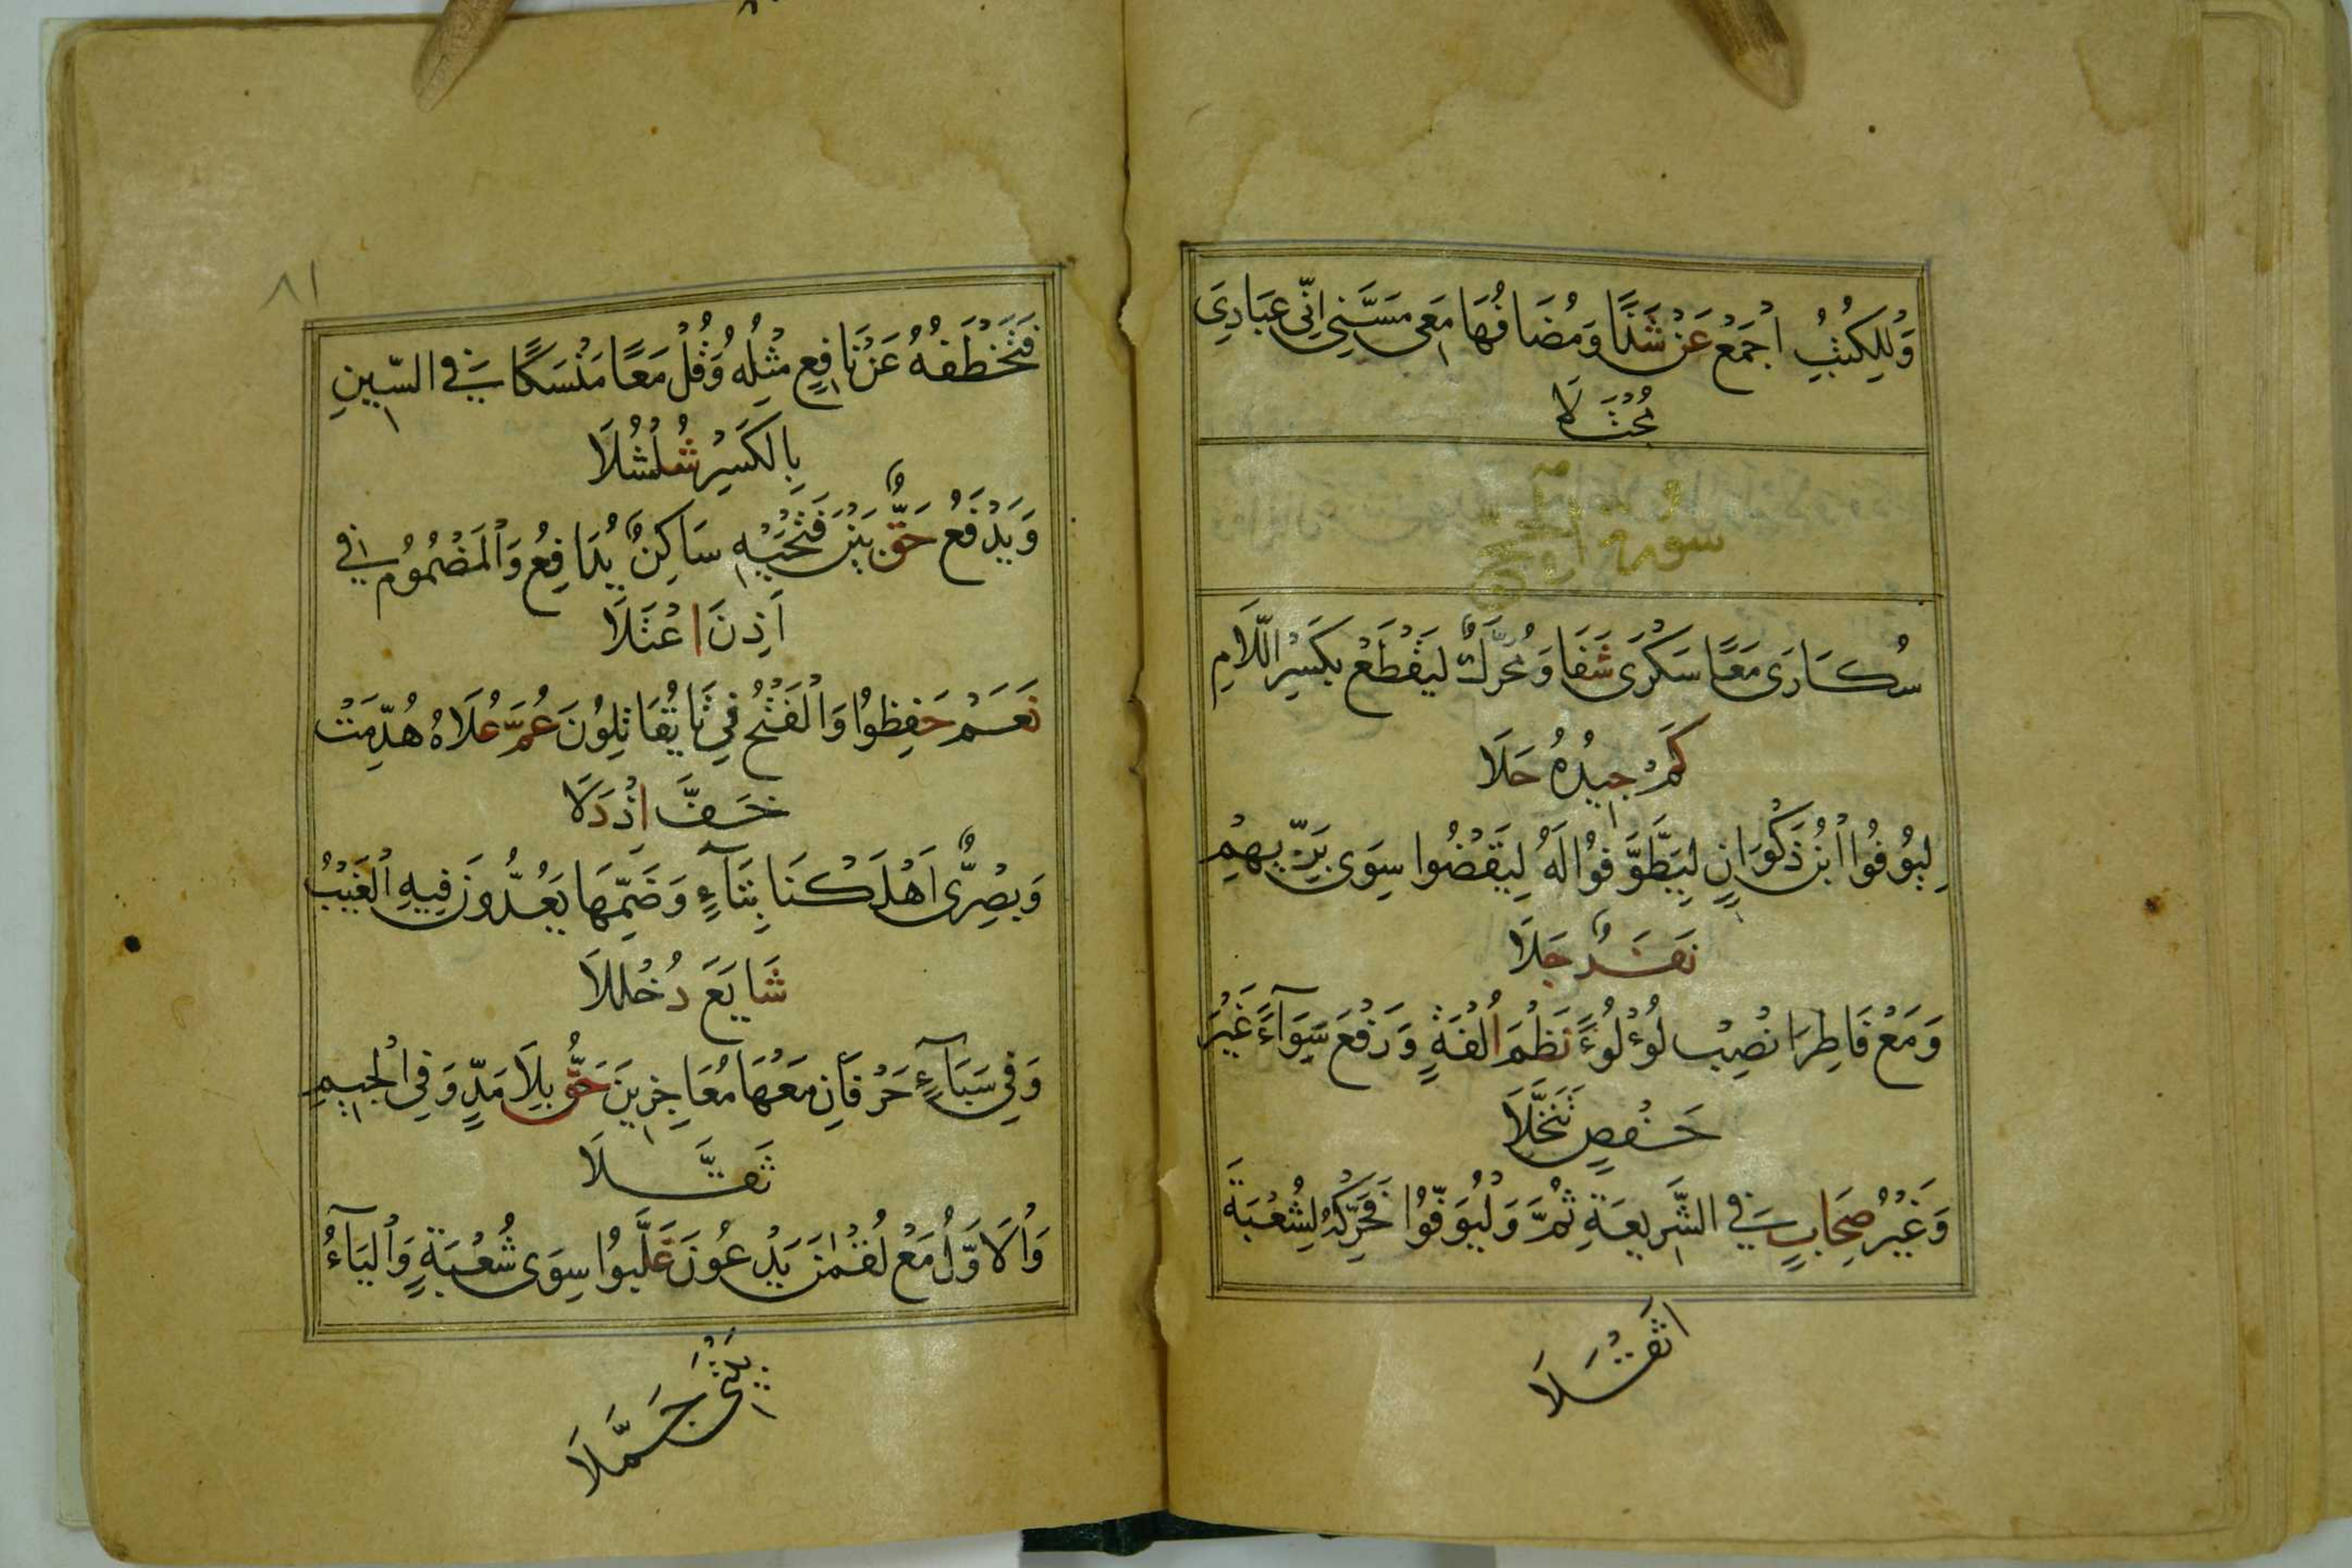 وَلِلْكُتُبِ اجْمَعْ عَنْ شَذًا وَمُضَافُهَا مَعِي مَسَّنِي اِنِّي عِبَادِيَ
مُجْتَلَا
سُورَةُ الْحَجِّ
سُكَارَى مَعًا سَكْرَى شَفَا وَمُحَرَّكٌ لِيَقْطَعْ بِكَسْرِ اللَّامِ
كَمْ جِيدُهُ حَلَا
لِيُوفُوا ابْنُ ذَكْوَانٍ لِيَطَّوَّفُوا لَهُ لِيَقْضُوا سِوَى بَزِّيِّهِمْ
نَفَرٌ جَلَا
وَمَعْ فَاطِرَ انْصِبْ لُؤْلُؤًا نَظْمَ اُلْفَةٍ وَرَفْعَ سَوَآءً غَيْرَ
حَفْصٍ تَنَخَّلَا
وَغَيْرُ صِحَابٍ فِي الشَّرِيعَةِ ثُمَّ وَلْيُوَفُّوا فَحَرِّكْهُ لِشُعْبَةَ
اثْقَلَا
٨١
فَتَخْطَفُهُ عَنْ نَافِعٍ مِثْلُهُ وَقُلْ مَعًا مَنْسَكًا فِي السِّينِ
بِالْكَسْرِ شُلْشُلَا
وَيَدْفَعُ حَقٌّ بَيْنَ فَتْحَيْهِ سَاكِنٌ يُدَافِعُ وَالْمَضْمُومُ فِي
اَذِنَ اعْتَلَا
نَعَمْ حَفِظُوا وَالْفَتْحُ فِي تَا يُقَاتِلُونَ عَمَّ عُلَاهُ هُدِّمَتْ
خَفَّ اِذْ دَلَا
وَبَصْرِيٌّ اَهْلَكْنَا بِتَآءٍ وَضَمِّهَا يَعُدُّونَ فِيهِ الْغَيْبُ
شَايَعَ دُخْلُلَا
وَفِي سَبَاءٍ حَرْفَانِ مَعْهَا مُعَاجِزِينَ حَقٌّ بِلَا مَدٍّ وَفِي الْجِيمِ
ثَقَّلَا
وَالْاَوَّلُ مَعْ لُقْمٰنَ يَدْعُونَ غَلَّبُوا سِوَى شُعْبَةٍ وَالْيَآءُ
بَيْتِي جَمَّلَا